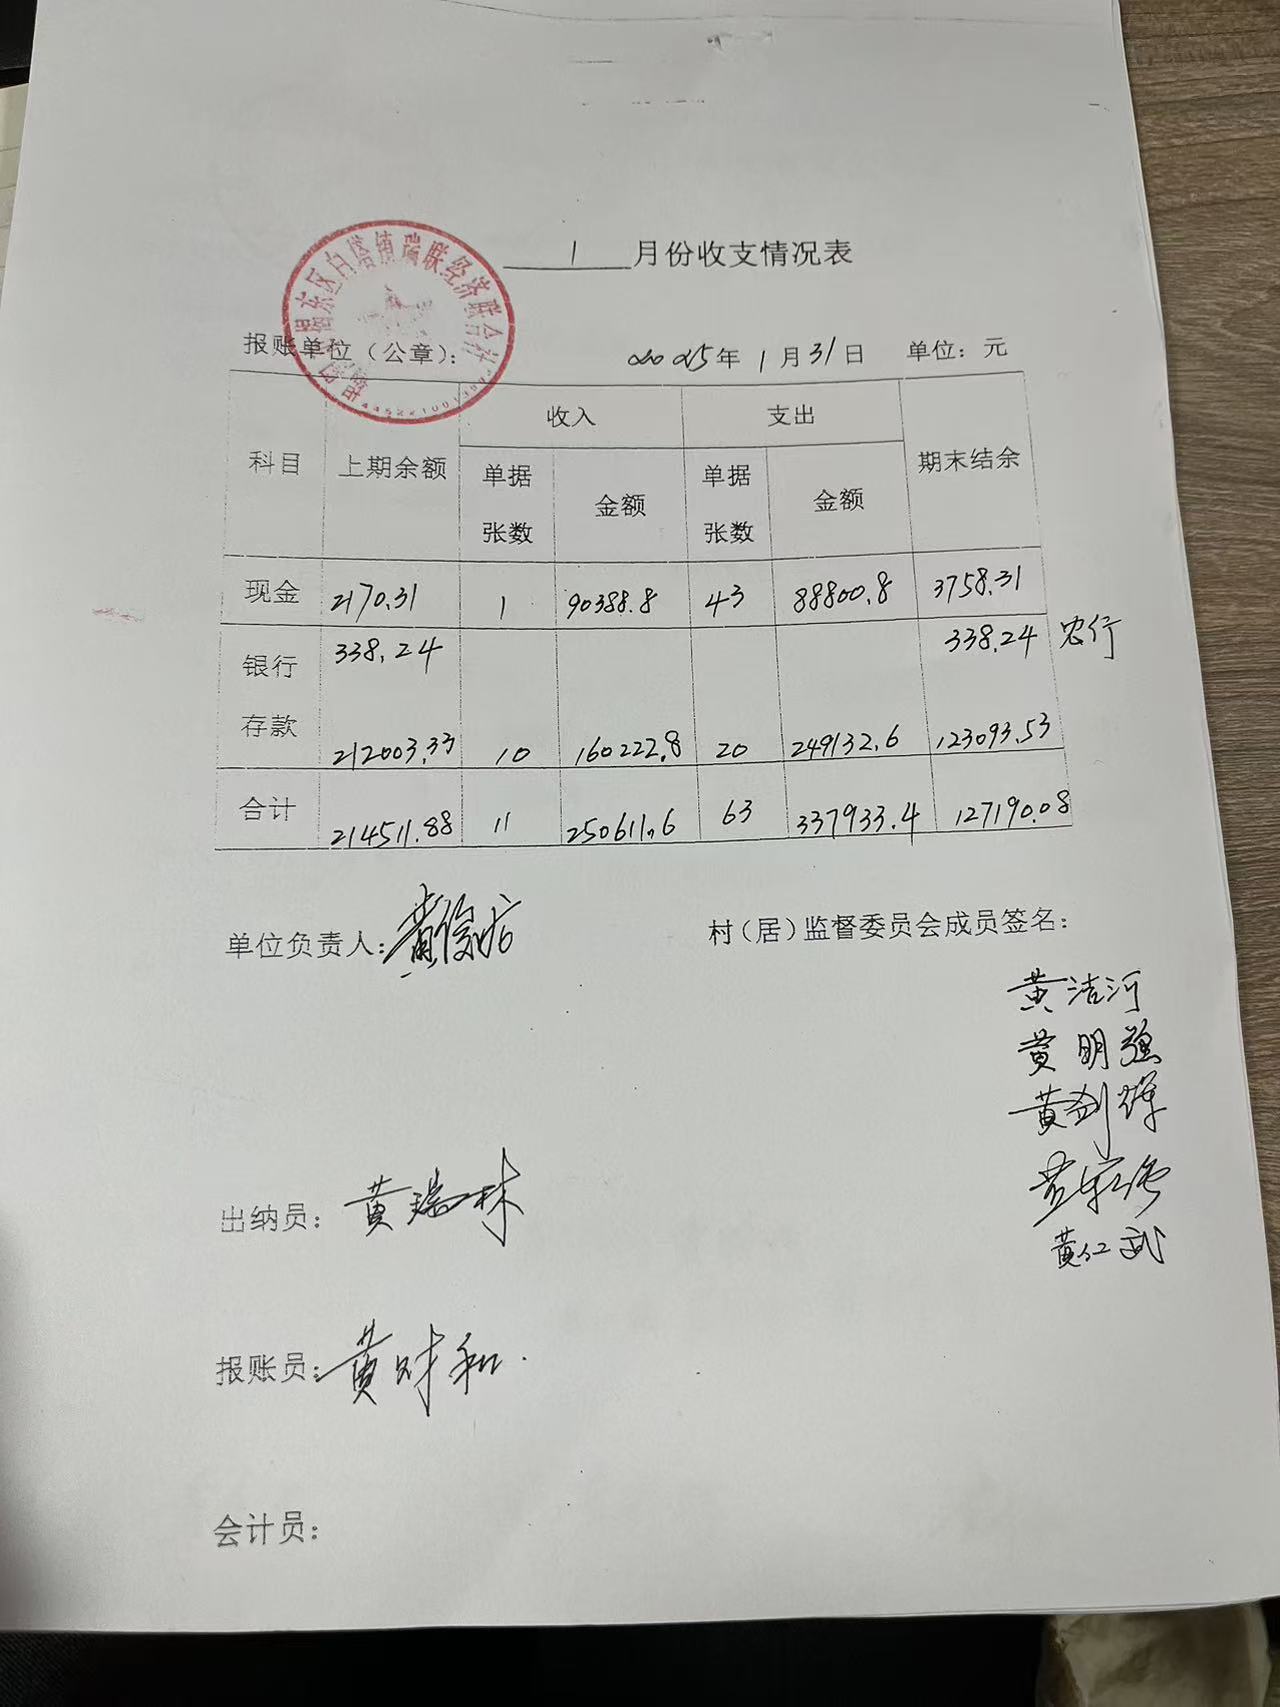 1 月份收支情况表
揭东区白塔镇瑞联经济联合社
报账单位（公章）： 2025年 1月31日 单位：元
科目 上期余额 收入 支出 期末结余
单据张数 金额 单据张数 金额
现金 2170.31 1 90388.8 43 88800.8 3758.31
338.24 338.24 农行
银行存款 212003.33 10 160222.8 20 249132.6 123093.53
合计 214511.88 11 250611.6 63 337933.4 127190.08
单位负责人： 村（居）监督委员会成员签名：
黄洁河
黄明强
黄剑辉
出纳员：黄瑞林
黄仁武
报账员：黄财和
会计员：